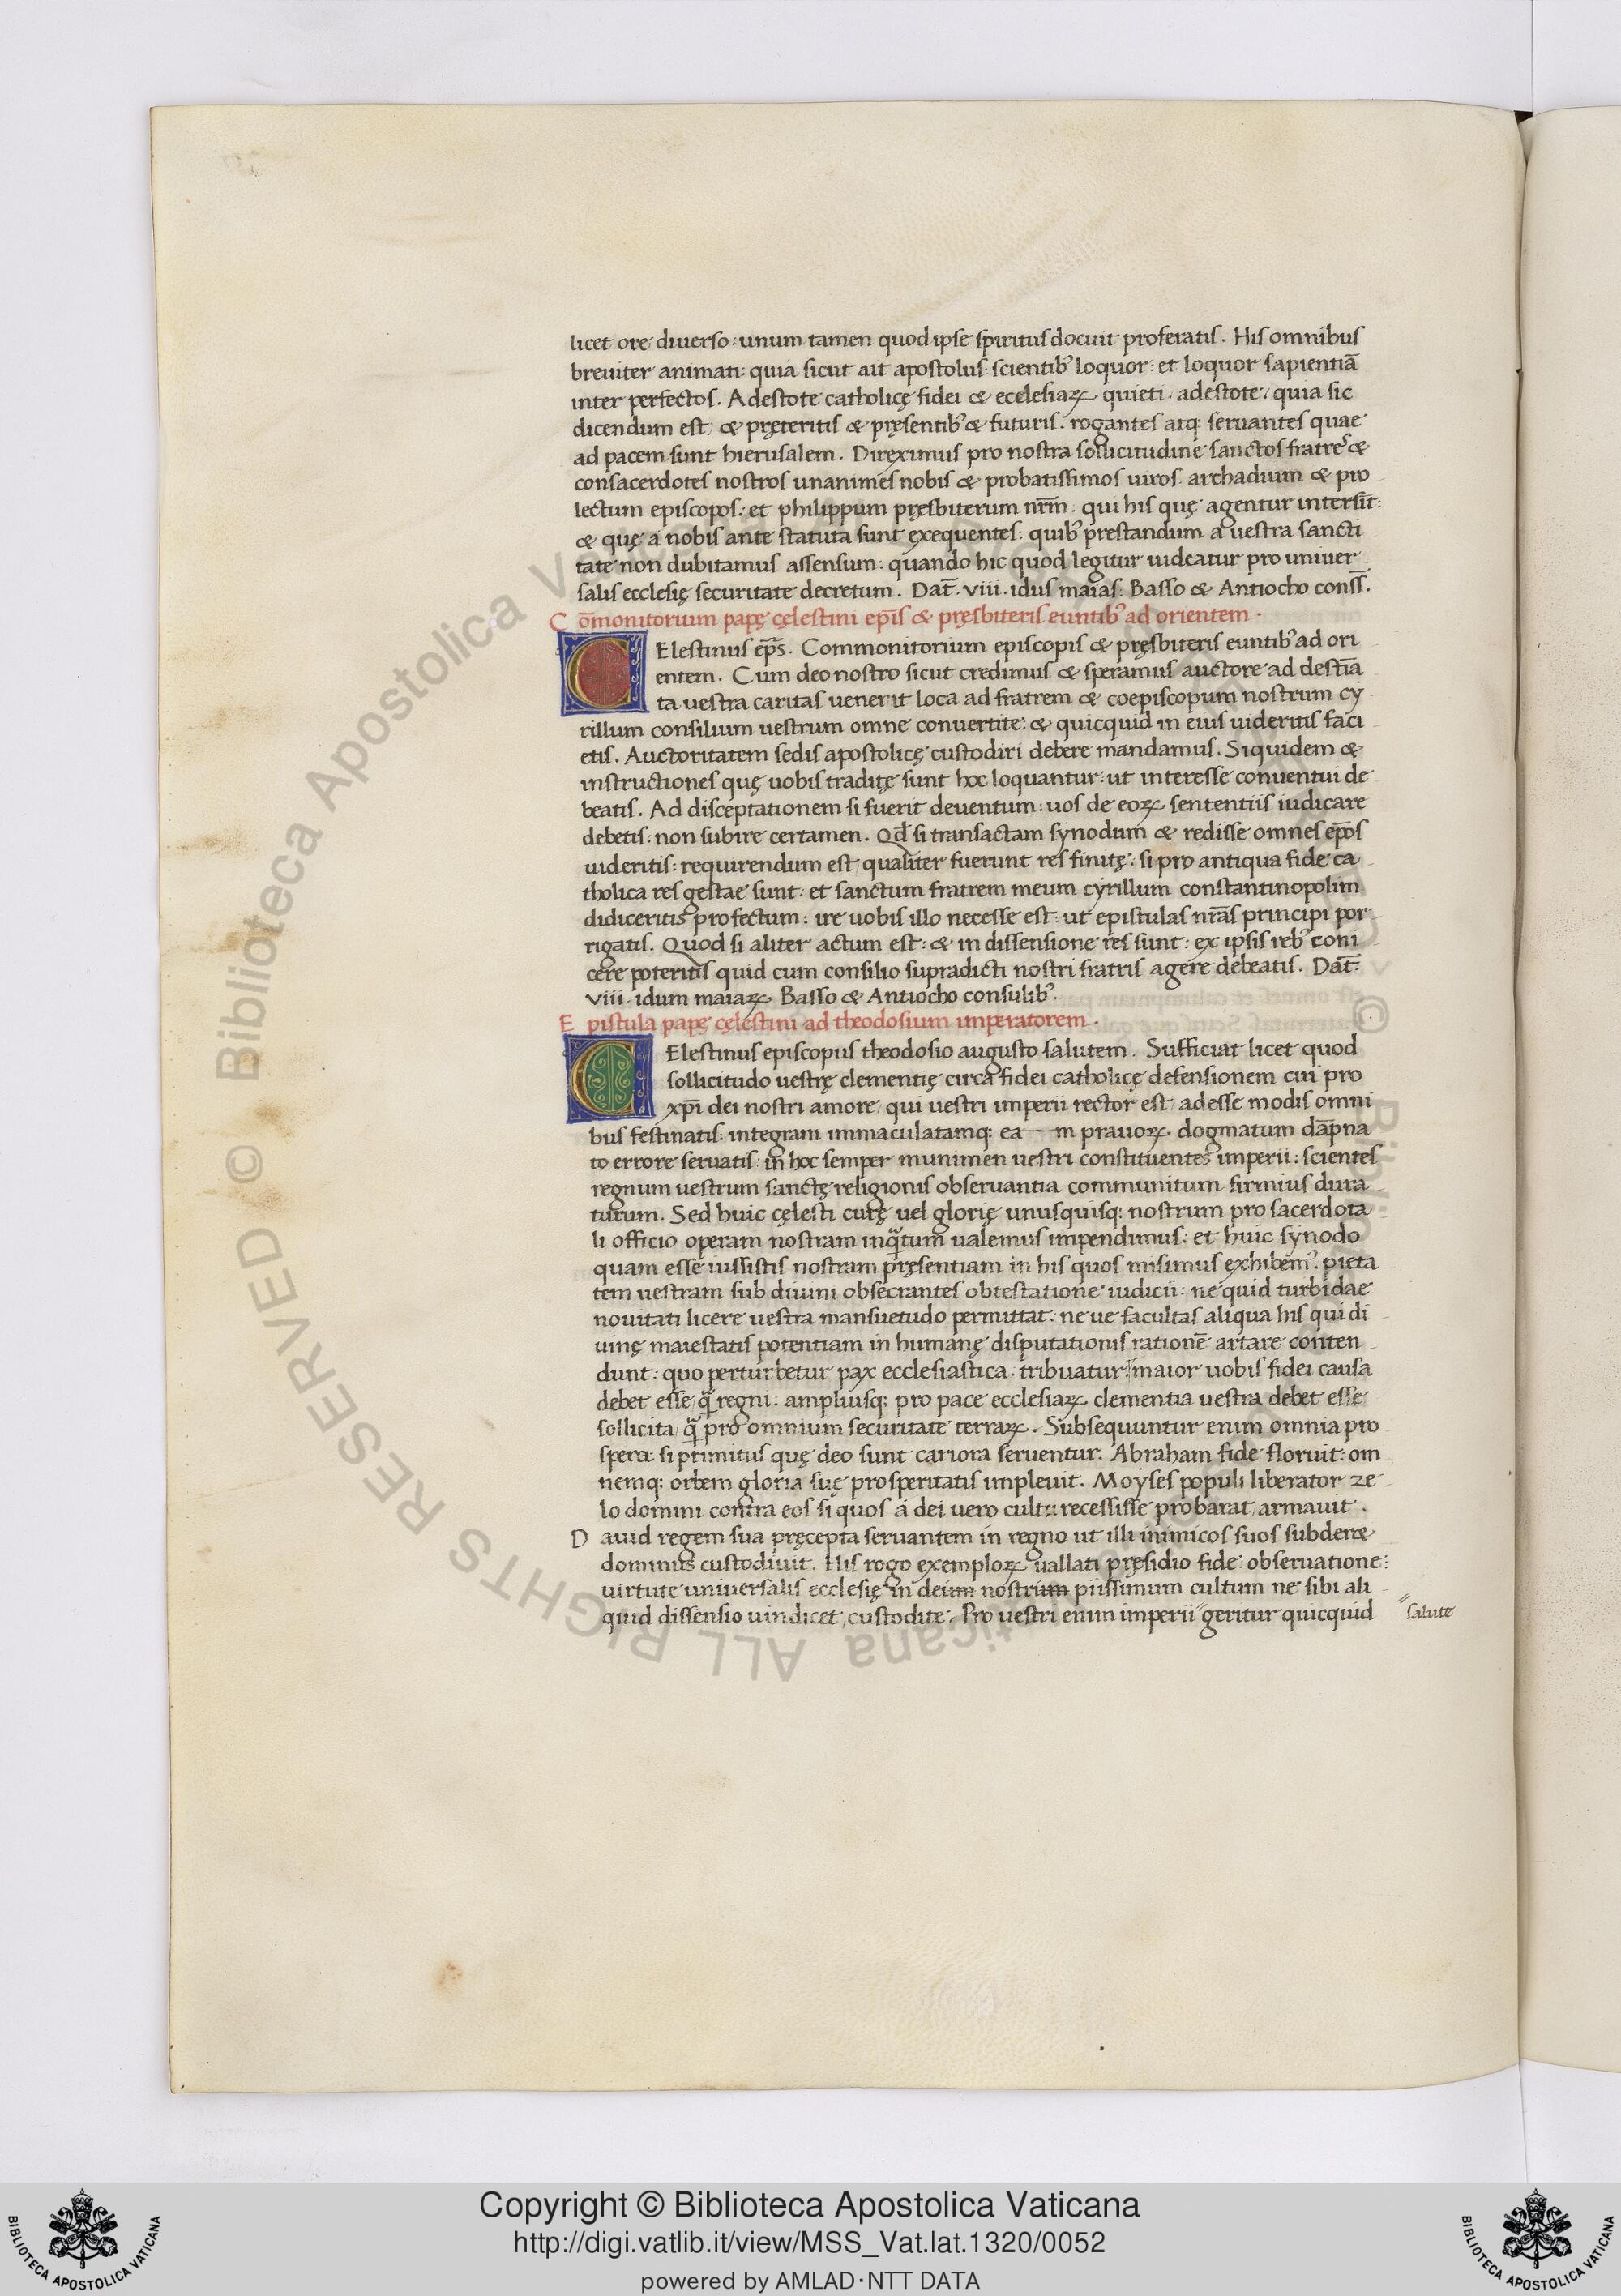 licet ore diuerso: unum tamen quod ipse spiritus docuit proferatis. His omnibus
breuiter animati: quia sicut ait apostolus scientib' loquor: et loquor sapientiā
inter perfectos. Adestote catholicę fidei & ecclesiaꝝ quieti: adestote, quia sic
dicendum est, & pręteritis & pręsentib' & futuris. rogantes atq; seruantes quae
ad pacem sunt hierusalem. Direximus pro nostra sollicitudine sanctos fratres &
consacerdotes nostros unanimes nobis & probatissimos uiros. archadium & pro
lectum episcopos: et philippum pręsbiterum nr̄m. qui his quę agentur intersīt:
& quę a nobis ante statuta sunt exequentes: quib' prestandum a uestra sancti
tate non dubitamus assensum: quando hic quod legitur uideatur pro uniuer
salis ecclesię securitate decretum. Dat̄. viii. idus maias: Basso & Antiocho consš.
Cōmonitorium papę cęlestini ep̄is & pręsbiteris euntib' ad orientem.
CElestinus ep̄s. Commonitorium episcopis & pręsbiteris euntib' ad ori
entem. Cum deo nostro sicut credimus & speramus auctore ad destīa
ta uestra caritas uenerit loca ad fratrem & coepiscopum nostrum cy
rillum consilium uestrum omne conuertite: & quicquid in eius uideritis faci
etis. Auctoritatem sedis apostolicę custodiri debere mandamus. Siquidem &
instructiones quę uobis traditę sunt hoc loquantur: ut interesse conuentui de
beatis. Ad disceptationem si fuerit deuentum: uos de eoꝝ sententiis iudicare
debetis: non subire certamen. Qđ si transactam synodum & redisse omnes ep̄os
uideritis: requirendum est qualiter fuerunt res finitę: si pro antiqua fide ca
tholica res gestae sunt: et sanctum fratrem meum cyrillum constantinopolim
didiceritis profectum: ire uobis illo necesse est: ut epistulas nr̄as principi por
rigatis. Quod si aliter actum est: & in dissensione res sunt: ex ipsis reb' coni
cere poteritis quid cum consilio supradicti nostri fratris agere debeatis. Dat̄:
viii. idum maiaꝝ Basso & Antiocho consulib'.
Epistula papę cęlestini ad theodosium imperatorem.
CElestinus episcopus theodosio augusto salutem. Sufficiat licet quod
sollicitudo uestrę clementię circa fidei catholicę defensionem cui pro
xp̄i dei nostri amore, qui uestri imperii rector est, adesse modis omni
bus festinatis: integram immaculatamq; ea—m prauoꝝ dogmatum dāpna
to errore seruatis: in hoc semper munimen uestri constituentes imperii: scientes
regnum uestrum sanctę religionis obseruantia communitum firmius dura
turum. Sed huic cęlesti curę uel glorię unusquisq; nostrum pro sacerdota
li officio operam nostram inq̄tum ualemus impendimus: et huic synodo
quam esse iussistis nostram pręsentiam in his quos misimus exhibem'. pieta
tem uestram sub diuini obsecrantes obtestatione iudicii: ne quid turbidae
nouitati licere uestra mansuetudo permittat: ne ue facultas aliqua his qui di
uinę maiestatis potentiam in humanę disputationis rationē artare conten
dunt: quo perturbetur pax ecclesiastica. tribuatur: maior uobis fidei causa
debet esse q̄ regni. ampliusq; pro pace ecclesiaꝝ clementia uestra debet esse
sollicita, q̄ pro omnium securitate terraꝝ. Subsequuntur enim omnia pro
spera: si primitus quę deo sunt cariora seruentur. Abraham fide floruit: om
nemq; orbem gloria suę prosperitatis impleuit. Moyses populi liberator ze
lo domini contra eos si quos a dei uero cultu recessisse probarat, armauit.
Dauid regem sua pręcepta seruantem in regno ut illi inimicos suos subderet
dominus custodiuit. His rogo exemploꝝ uallati pręsidio fide: obseruatione:
uirtute uniuersalis ecclesię in deum nostrum piissimum cultum ne sibi ali
quid dissensio uindicet, custodite. Pro uestri enim imperii geritur quicquid
salute
Copyright © Biblioteca Apostolica Vaticana
http://digi.vatlib.it/view/MSS_Vat.lat.1320/0052
powered by AMLAD·NTT DATA
BIBLIOTECA APOSTOLICA VATICANA
BIBLIOTECA APOSTOLICA VATICANA